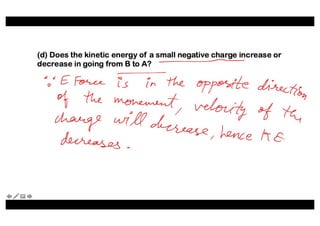 (d) Does the kinetic energy of a small negative charge increase or
decrease in going from B to A?
∵ E Force is in the opposite direction
of the movement, velocity of the
charge will decrease, hence KE
decreases.